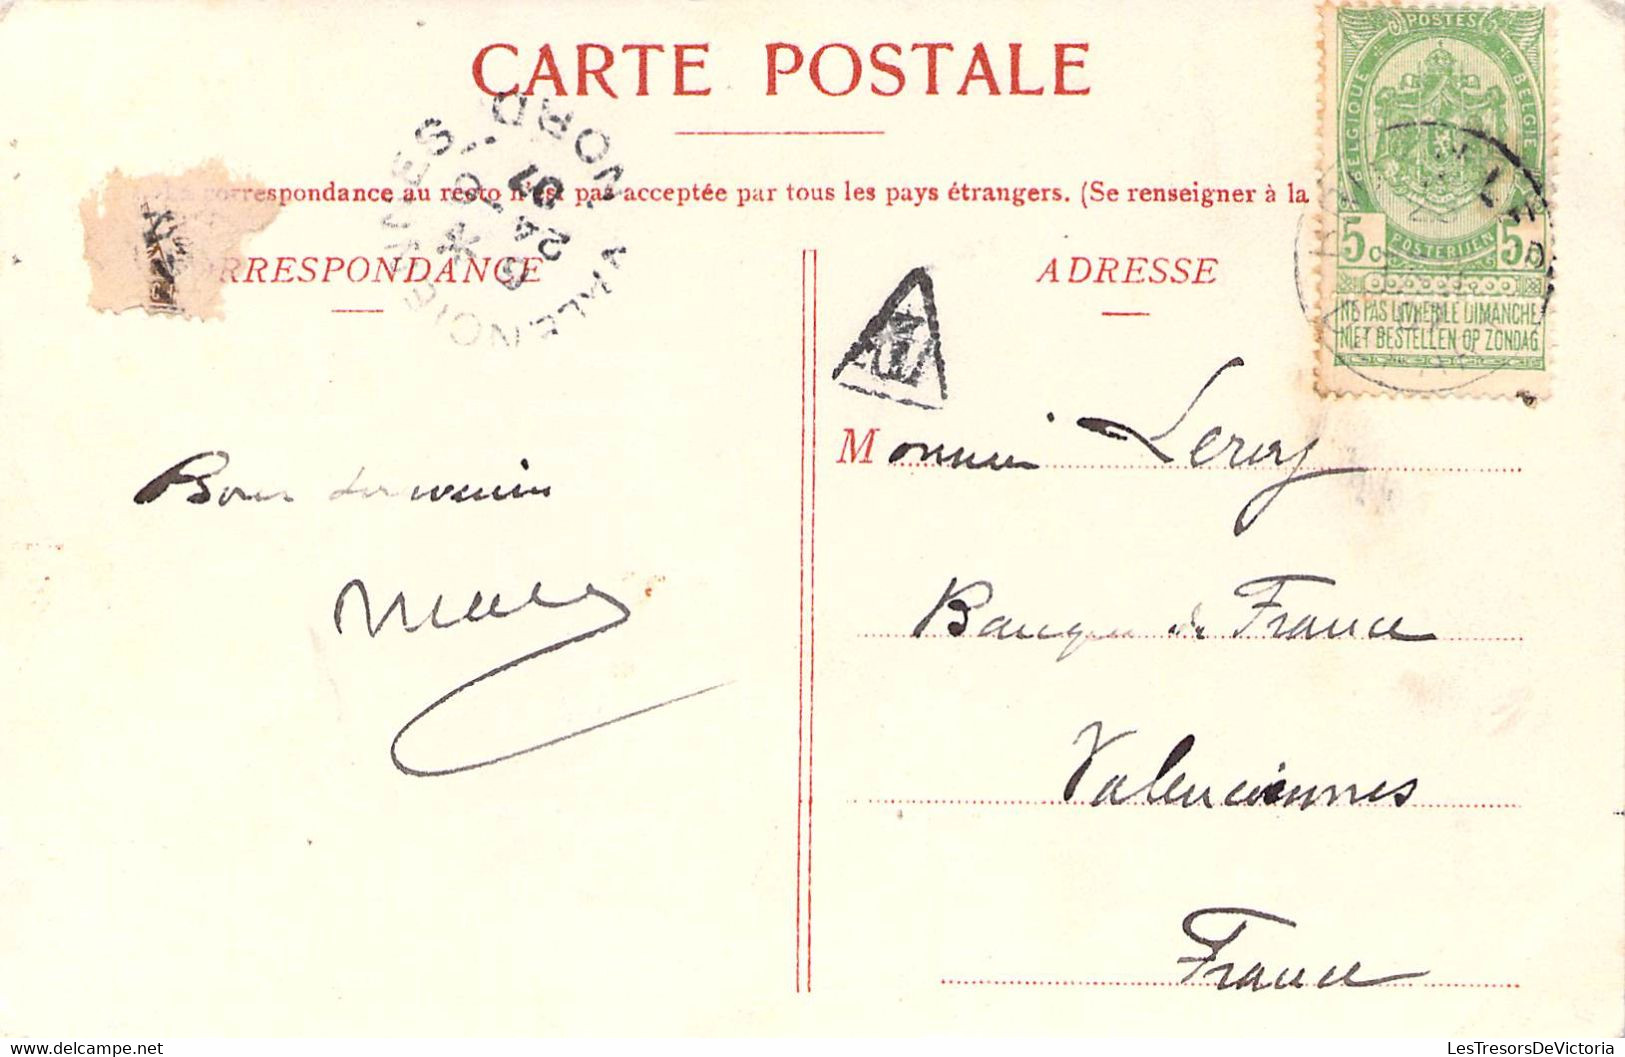 CARTE POSTALE
correspondance au resto n'est pas acceptée par tous les pays étrangers. (Se renseigner à la
CORRESPONDANCE
ADRESSE
POSTES
BELGIQUE
BELGIE
5c
POSTERIJEN
5c
NE PAS LIVRER LE DIMANCHE
NIET BESTELLEN OP ZONDAG
VALENCIENNES
NORD
24 - 5
07
T
Bons souvenirs
Monsieur Leroy
Banque de France
Valenciennes
France
LesTresorsDeVictoria
delcampe.net